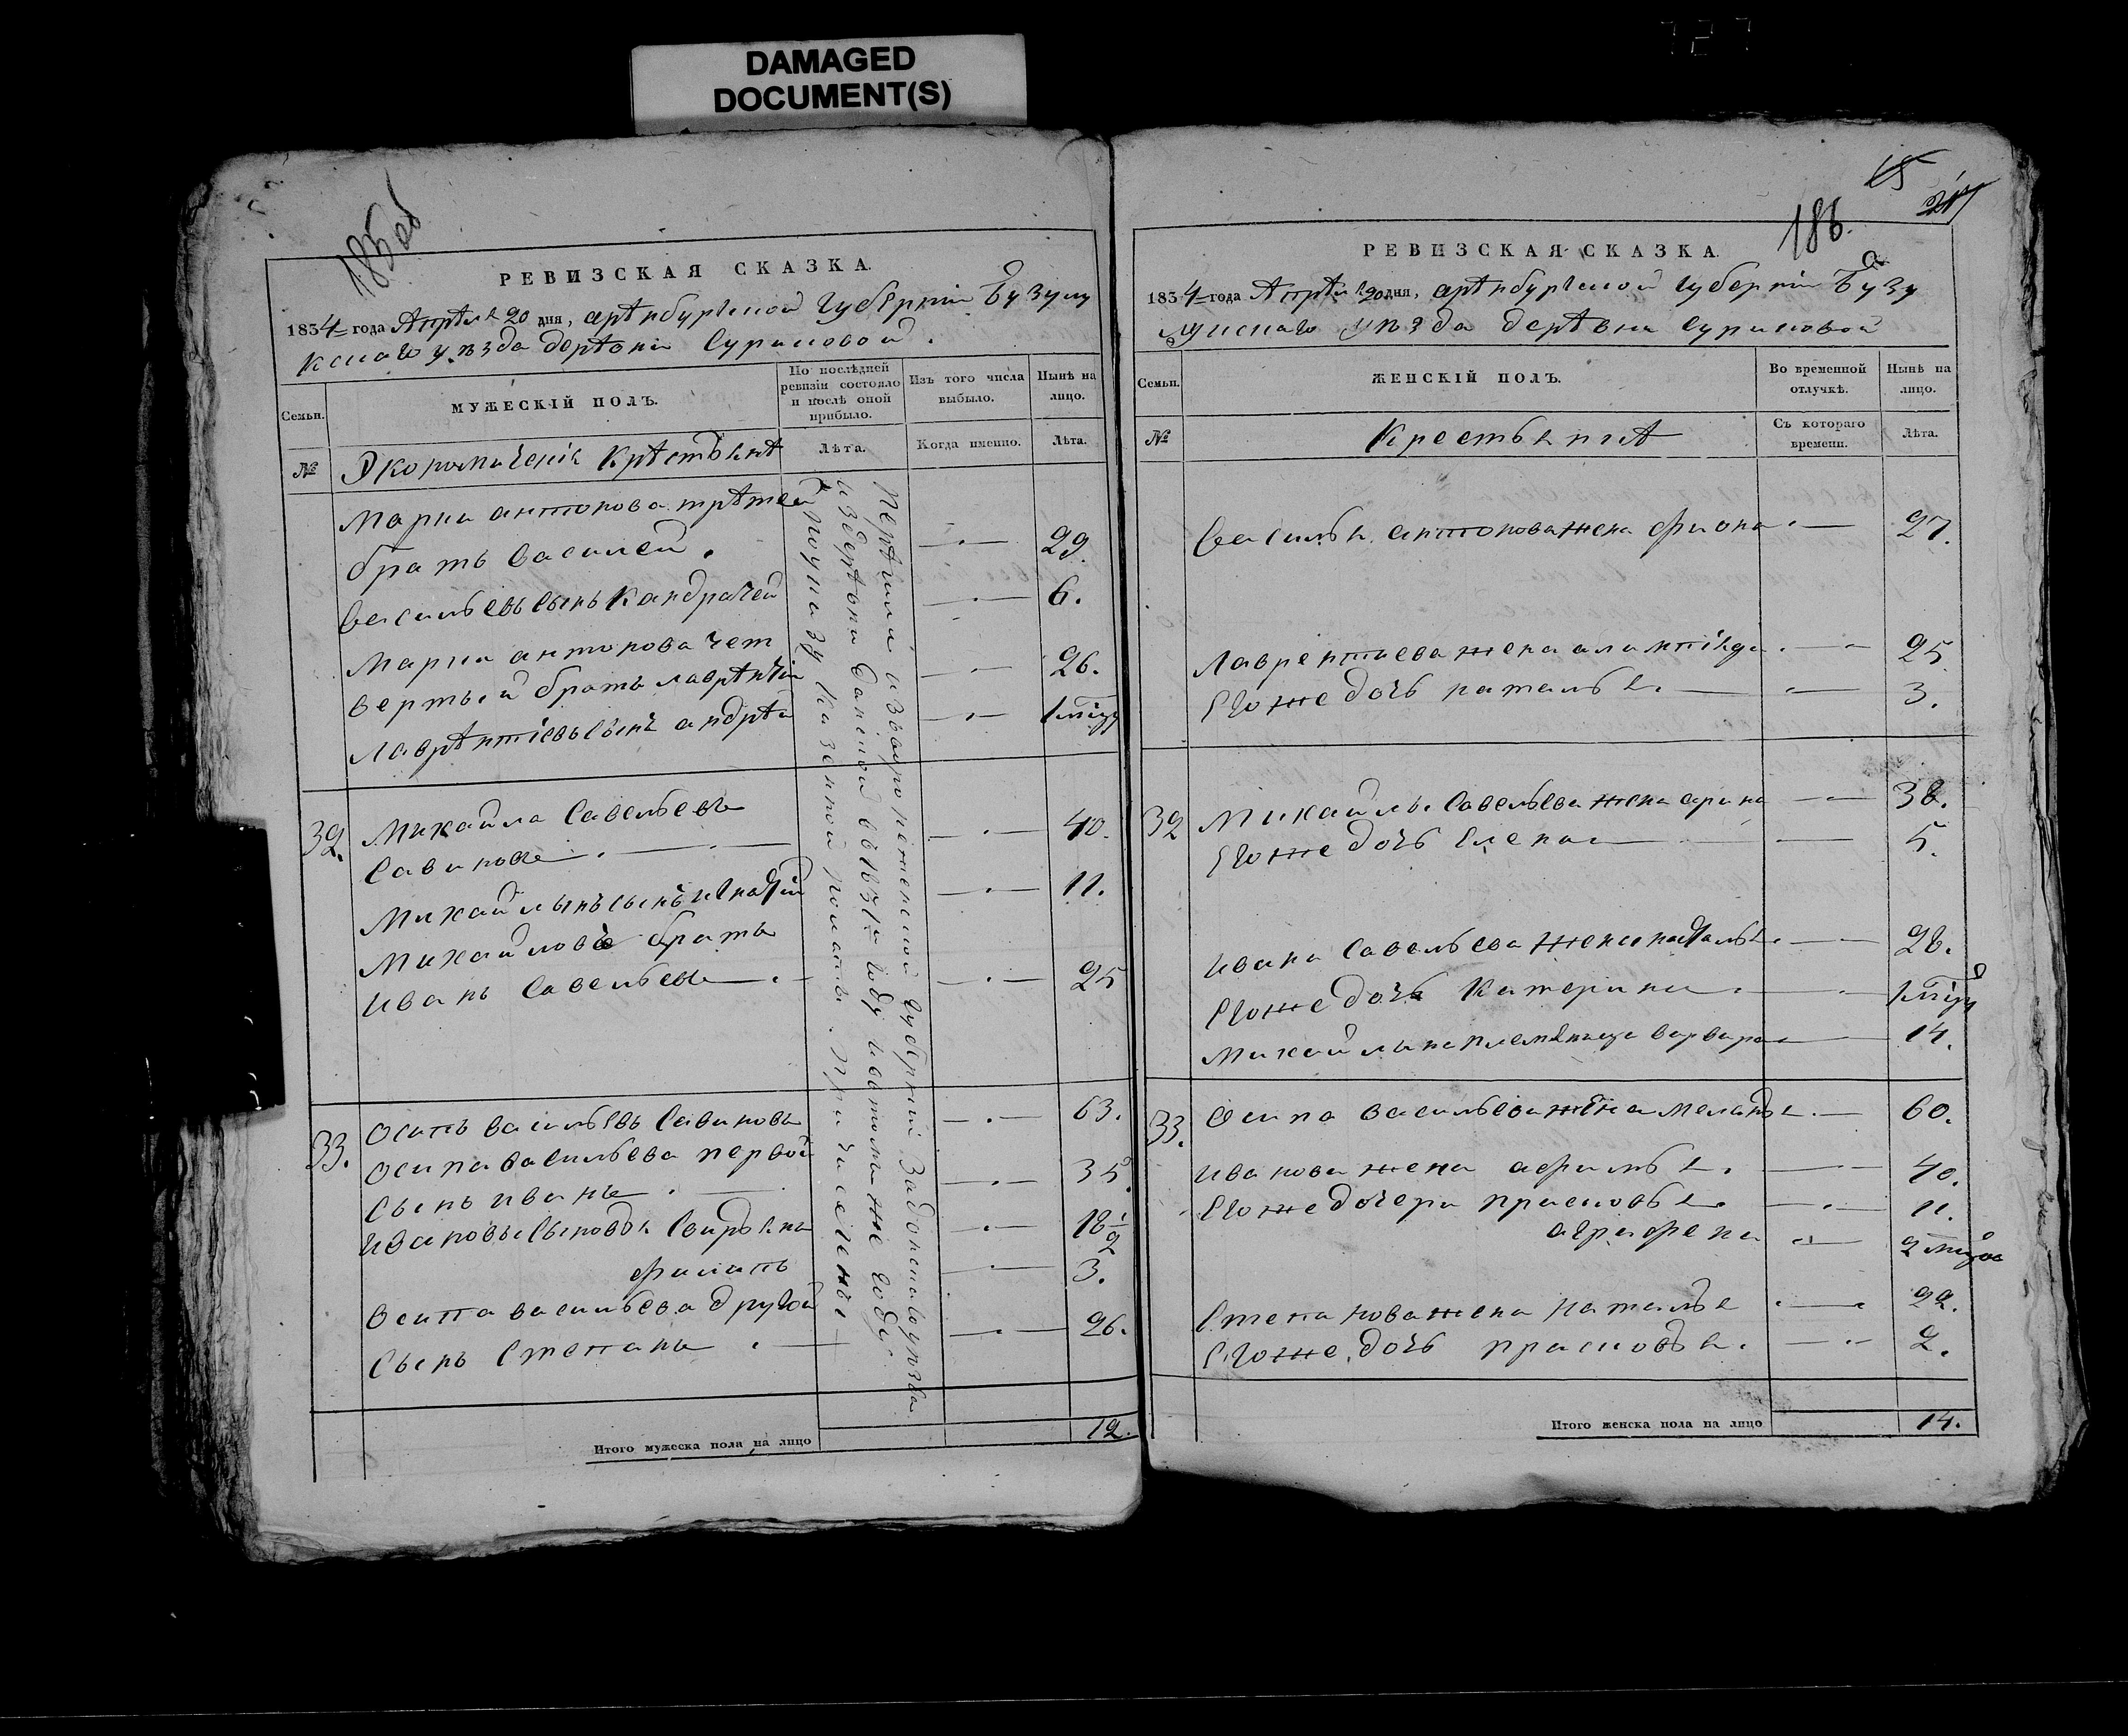 DAMAGED
DOCUMENT(S)
185 об
РЕВИЗСКАЯ СКАЗКА.
1834 года Апрѣля 20 дня, арѣнбургской губернiи Бузулу
кскаго уѣзда дерѣвни Суриковой.
Семьи.
МУЖЕСКIЙ ПОЛЪ.
По послѣдней ревизiи состояло и послѣ оной прибыло.
Изъ того числа выбыло.
Нынѣ на лицо.
№
Экономическiя Крѣстьянѣ
Лѣта.
Когда именно.
Лѣта.
Марки антонова трѣтей
братъ василей. 29.
васильевъ сынъ Кандратей 6.
Марки антонова чет
вертый братъ лаврѣнтiй 26.
Лаврѣнтiевъ сынъ андрѣй
32. Михайла Савельевъ
Савиновъ 40.
Михайлынъ сынъ 11.
Михайловъ братъ
иванъ Савельевъ 25
33. Осипъ васильевъ Савиновъ 63.
Осипа васильева первой
сынъ иванъ 35.
ивановы сыновья 18 1/2
филипъ 3.
Осипа васильева другой
сынъ Степанъ 26.
изъ воронежской губернiй Задонскаго уѣзда
издерѣвни в 1831м году ивътомъ же году
поуказу казенной палаты. причислены
Итого мужеска пола на лицо 12.
15
186.
РЕВИЗСКАЯ СКАЗКА.
1834 года Апрѣля 20 дня, арѣнбургской губернiи Бузу
лукскаго уѣзда дерѣвни Суриковой
Семьи.
ЖЕНСКIЙ ПОЛЪ.
Во временной отлучкѣ.
Нынѣ на лицо.
№
Крестьянкѣ
Съ котораго времени.
Лѣта.
василья антонова жена фиона 27.
Лаврентиева жена 25
Егоже дочь наталья 3.
32 Михайлы Савельева жена арина 38.
Егоже дочь Елена 5.
ивана Савельева жена наталья 28.
Егоже дочь Катерина
Михайлына племянница варвара 14.
33. Осипа васильева жена меланья 60.
иванова жена афимья 40.
Егоже дочери прасковья 11.
аграфена
Степанова жена наталья 22.
Егоже дочь прасковья 2.
Итого женска пола на лицо 14.